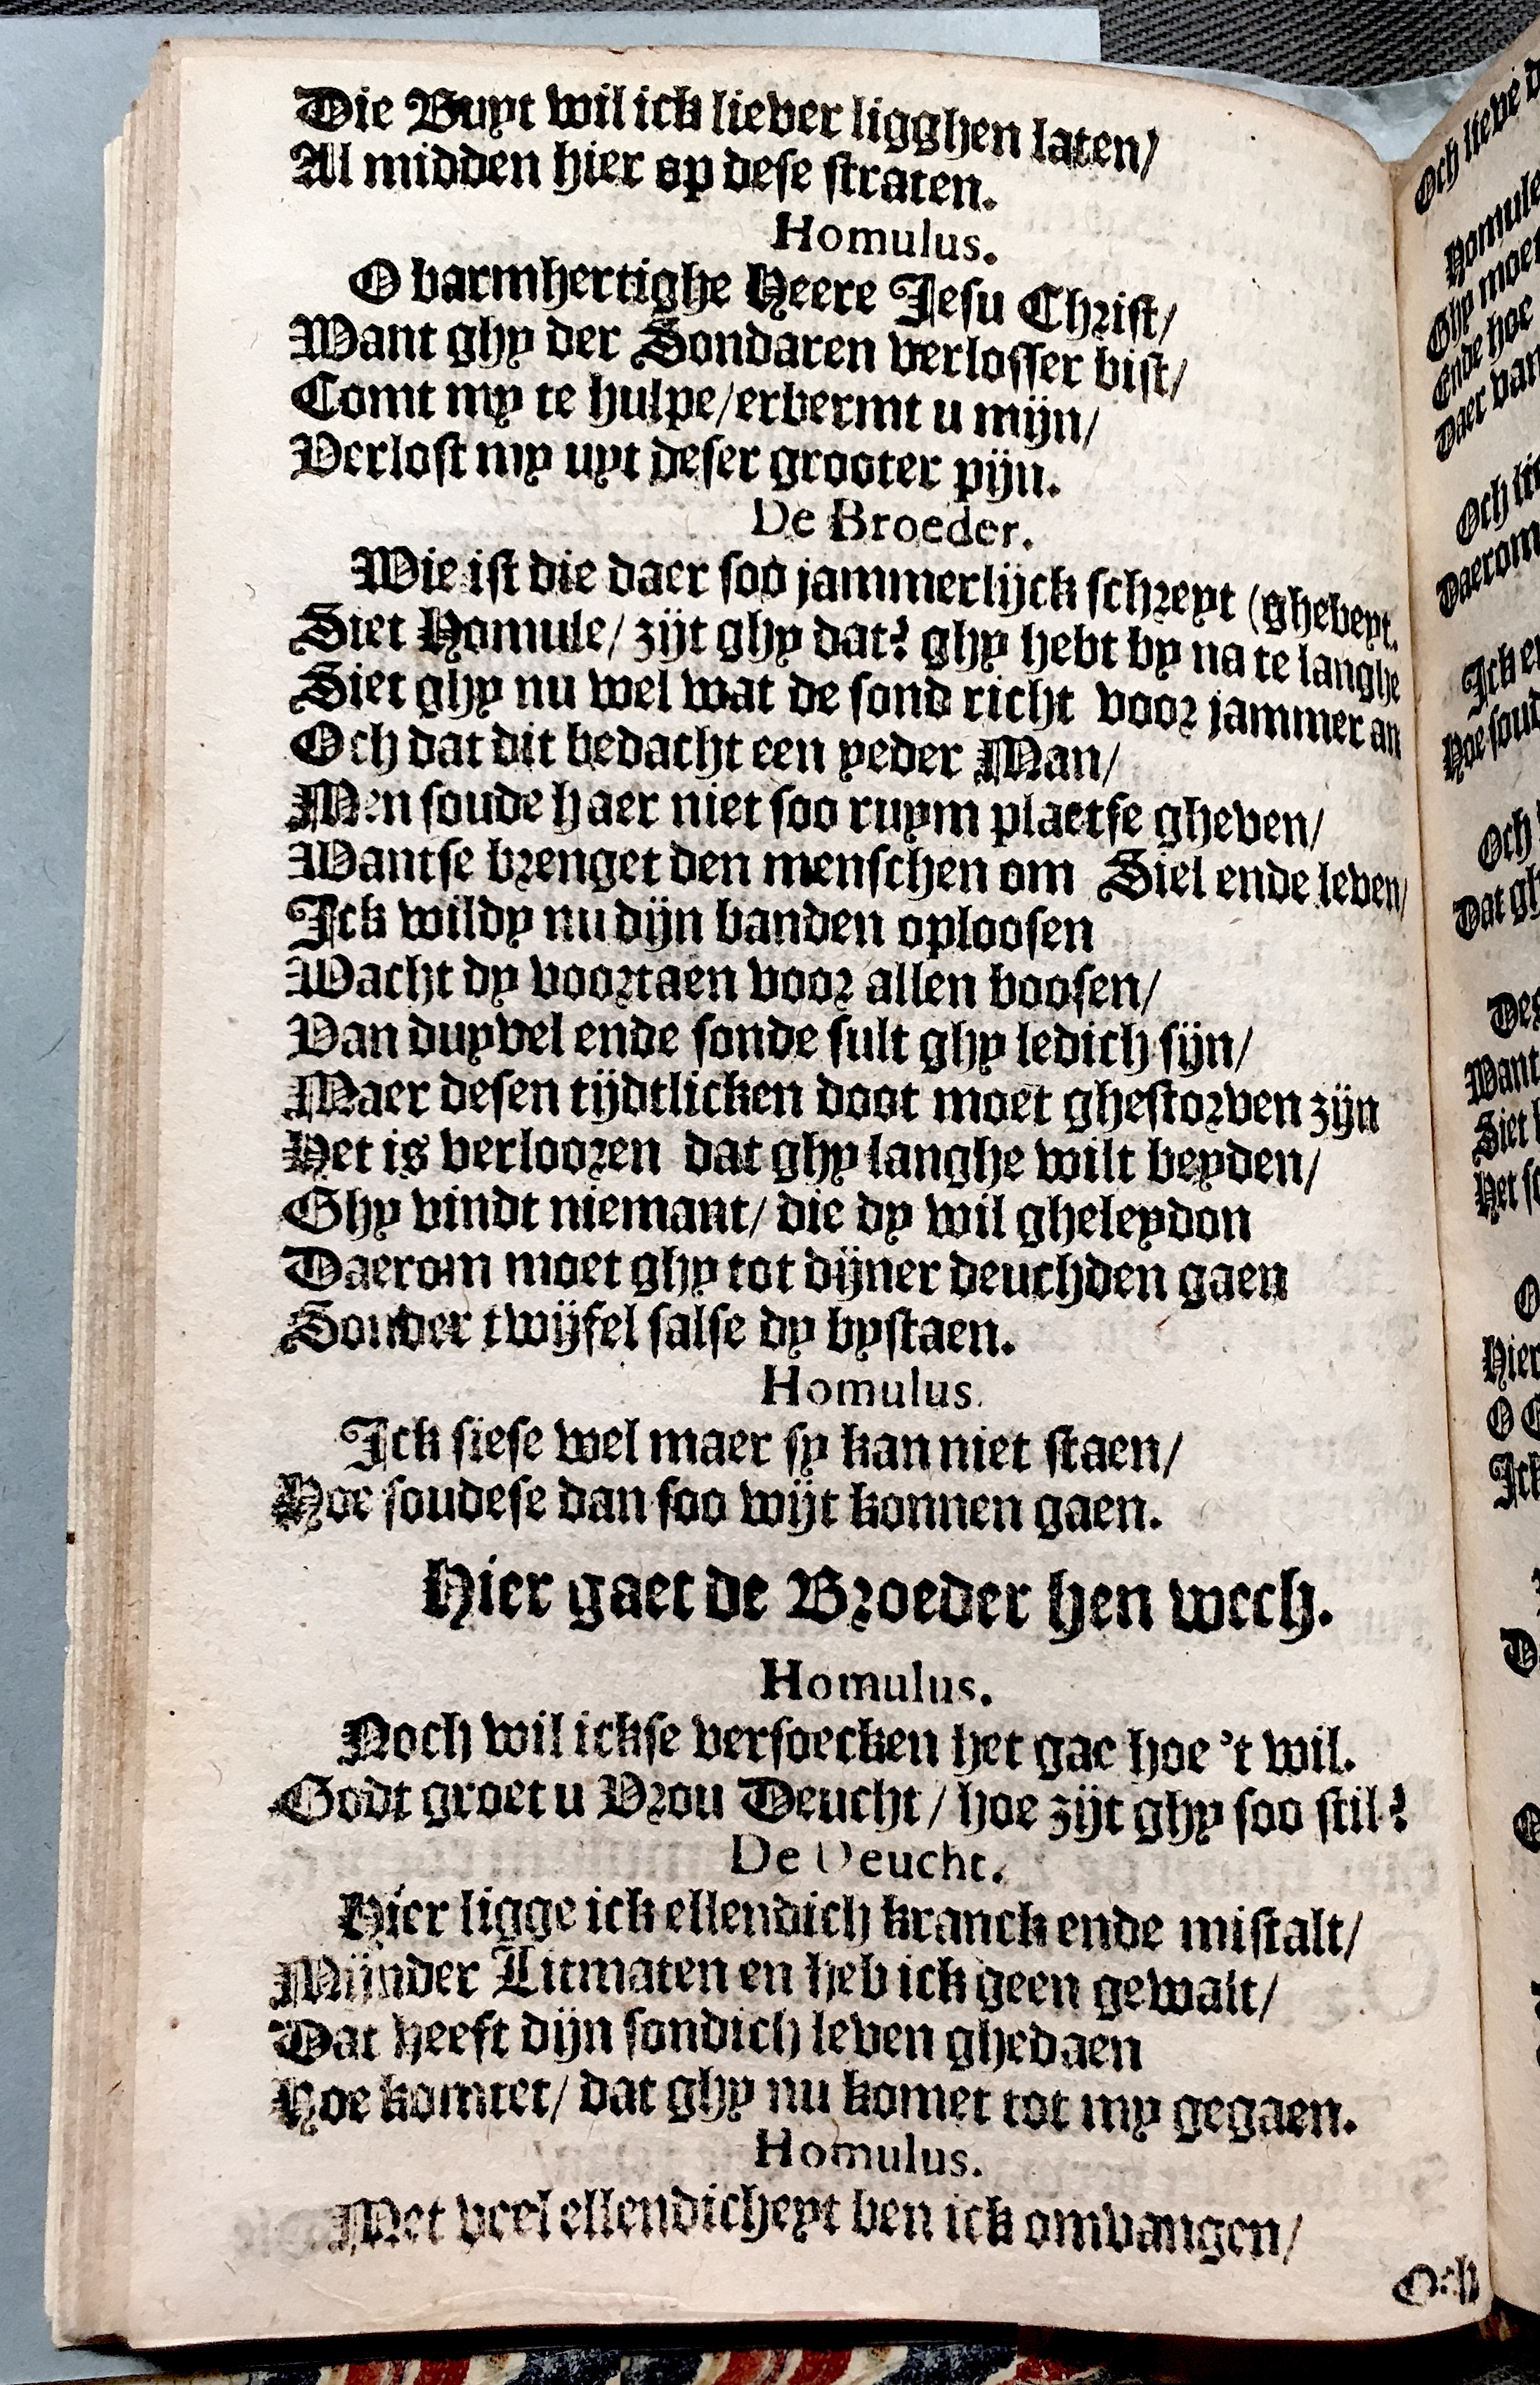 Die Buyt wil ick liever ligghen laten/
Al midden hier op dese straten.
Homulus.
O barmhertighe Heere Jesu Christ/
Want ghy der Sondaren verlosser bist/
Comt my te hulpe/erbermt u mijn/
Verlost my uyt deser grooter pijn.
De Broeder.
Wie ist die daer soo jammerlijck schreyt (ghebeyt.
Siet Homule/ zijt ghy dat? ghy hebt by na te langhe
Siet ghy nu wel wat de sond richt voor jammer an
Och dat dit bedacht een yeder Man/
Men soude haer niet soo ruym plaetse gheven/
Wantse brenget den menschen om Siel ende leven/
Ick wildy nu dijn banden oploosen
Wacht dy voortaen voor allen boosen/
Van duyvel ende sonde sult ghy ledich sijn/
Maer desen tijdtlicken doot moet ghestorven zijn
Het is verlooren dat ghy langhe wilt beyden/
Ghy vindt niemant/ die dy wil gheleydon
Daerom moet ghy tot dijner deuchden gaen
Sonder twijfel salse dy bystaen.
Homulus.
Ick siese wel maer sy kan niet staen/
Hoe soudese dan soo wijt konnen gaen.
Hier gaet de Broeder hen wech.
Homulus.
Noch wil ickse versoecken het gae hoe 't wil.
Godt groet u Vrou Deucht/ hoe zijt ghy soo stil?
De Deucht.
Hier ligge ick ellendich kranck ende mistalt/
Mijnder Litmaten en heb ick geen gewalt/
Dat heeft dijn sondich leven ghedaen
Hoe komtet/ dat ghy nu komet tot my gegaen.
Homulus.
Met veel ellendicheyt ben ick omvangen/
Och